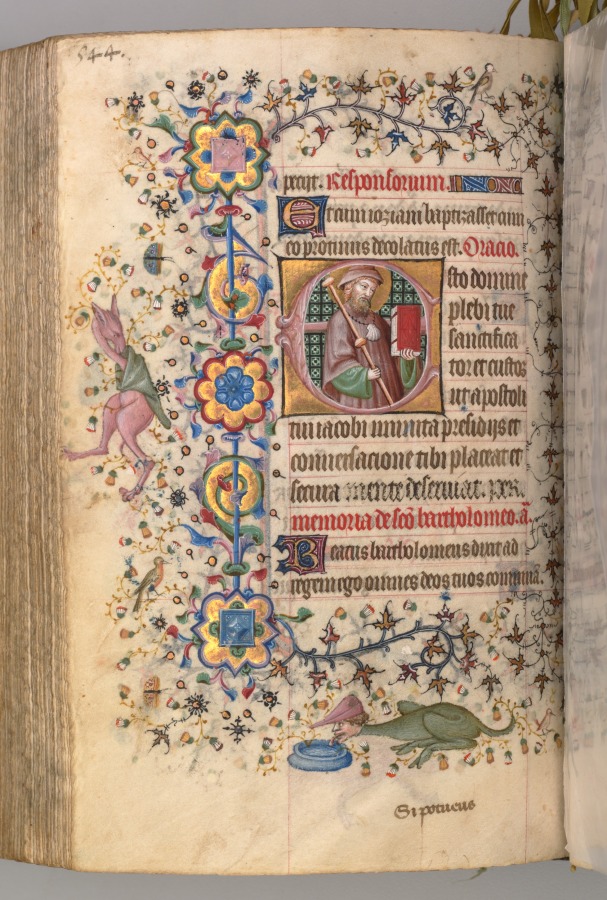 544.
petijt. Responsorium.
Et cum ioziam baptizasset cum
eo protinus decolatus est. Oracio.
Esto domine
plebi tue
sanctifica
tor et custos
ut apostoli
tui iacobi munita presidijs et
conuersacione tibi placeat et
secura mente deseruiat. per.
memoria de sco bartholomeo. a.
Beatus bartholomeus dixit ad
regem ego omnes deos tuos